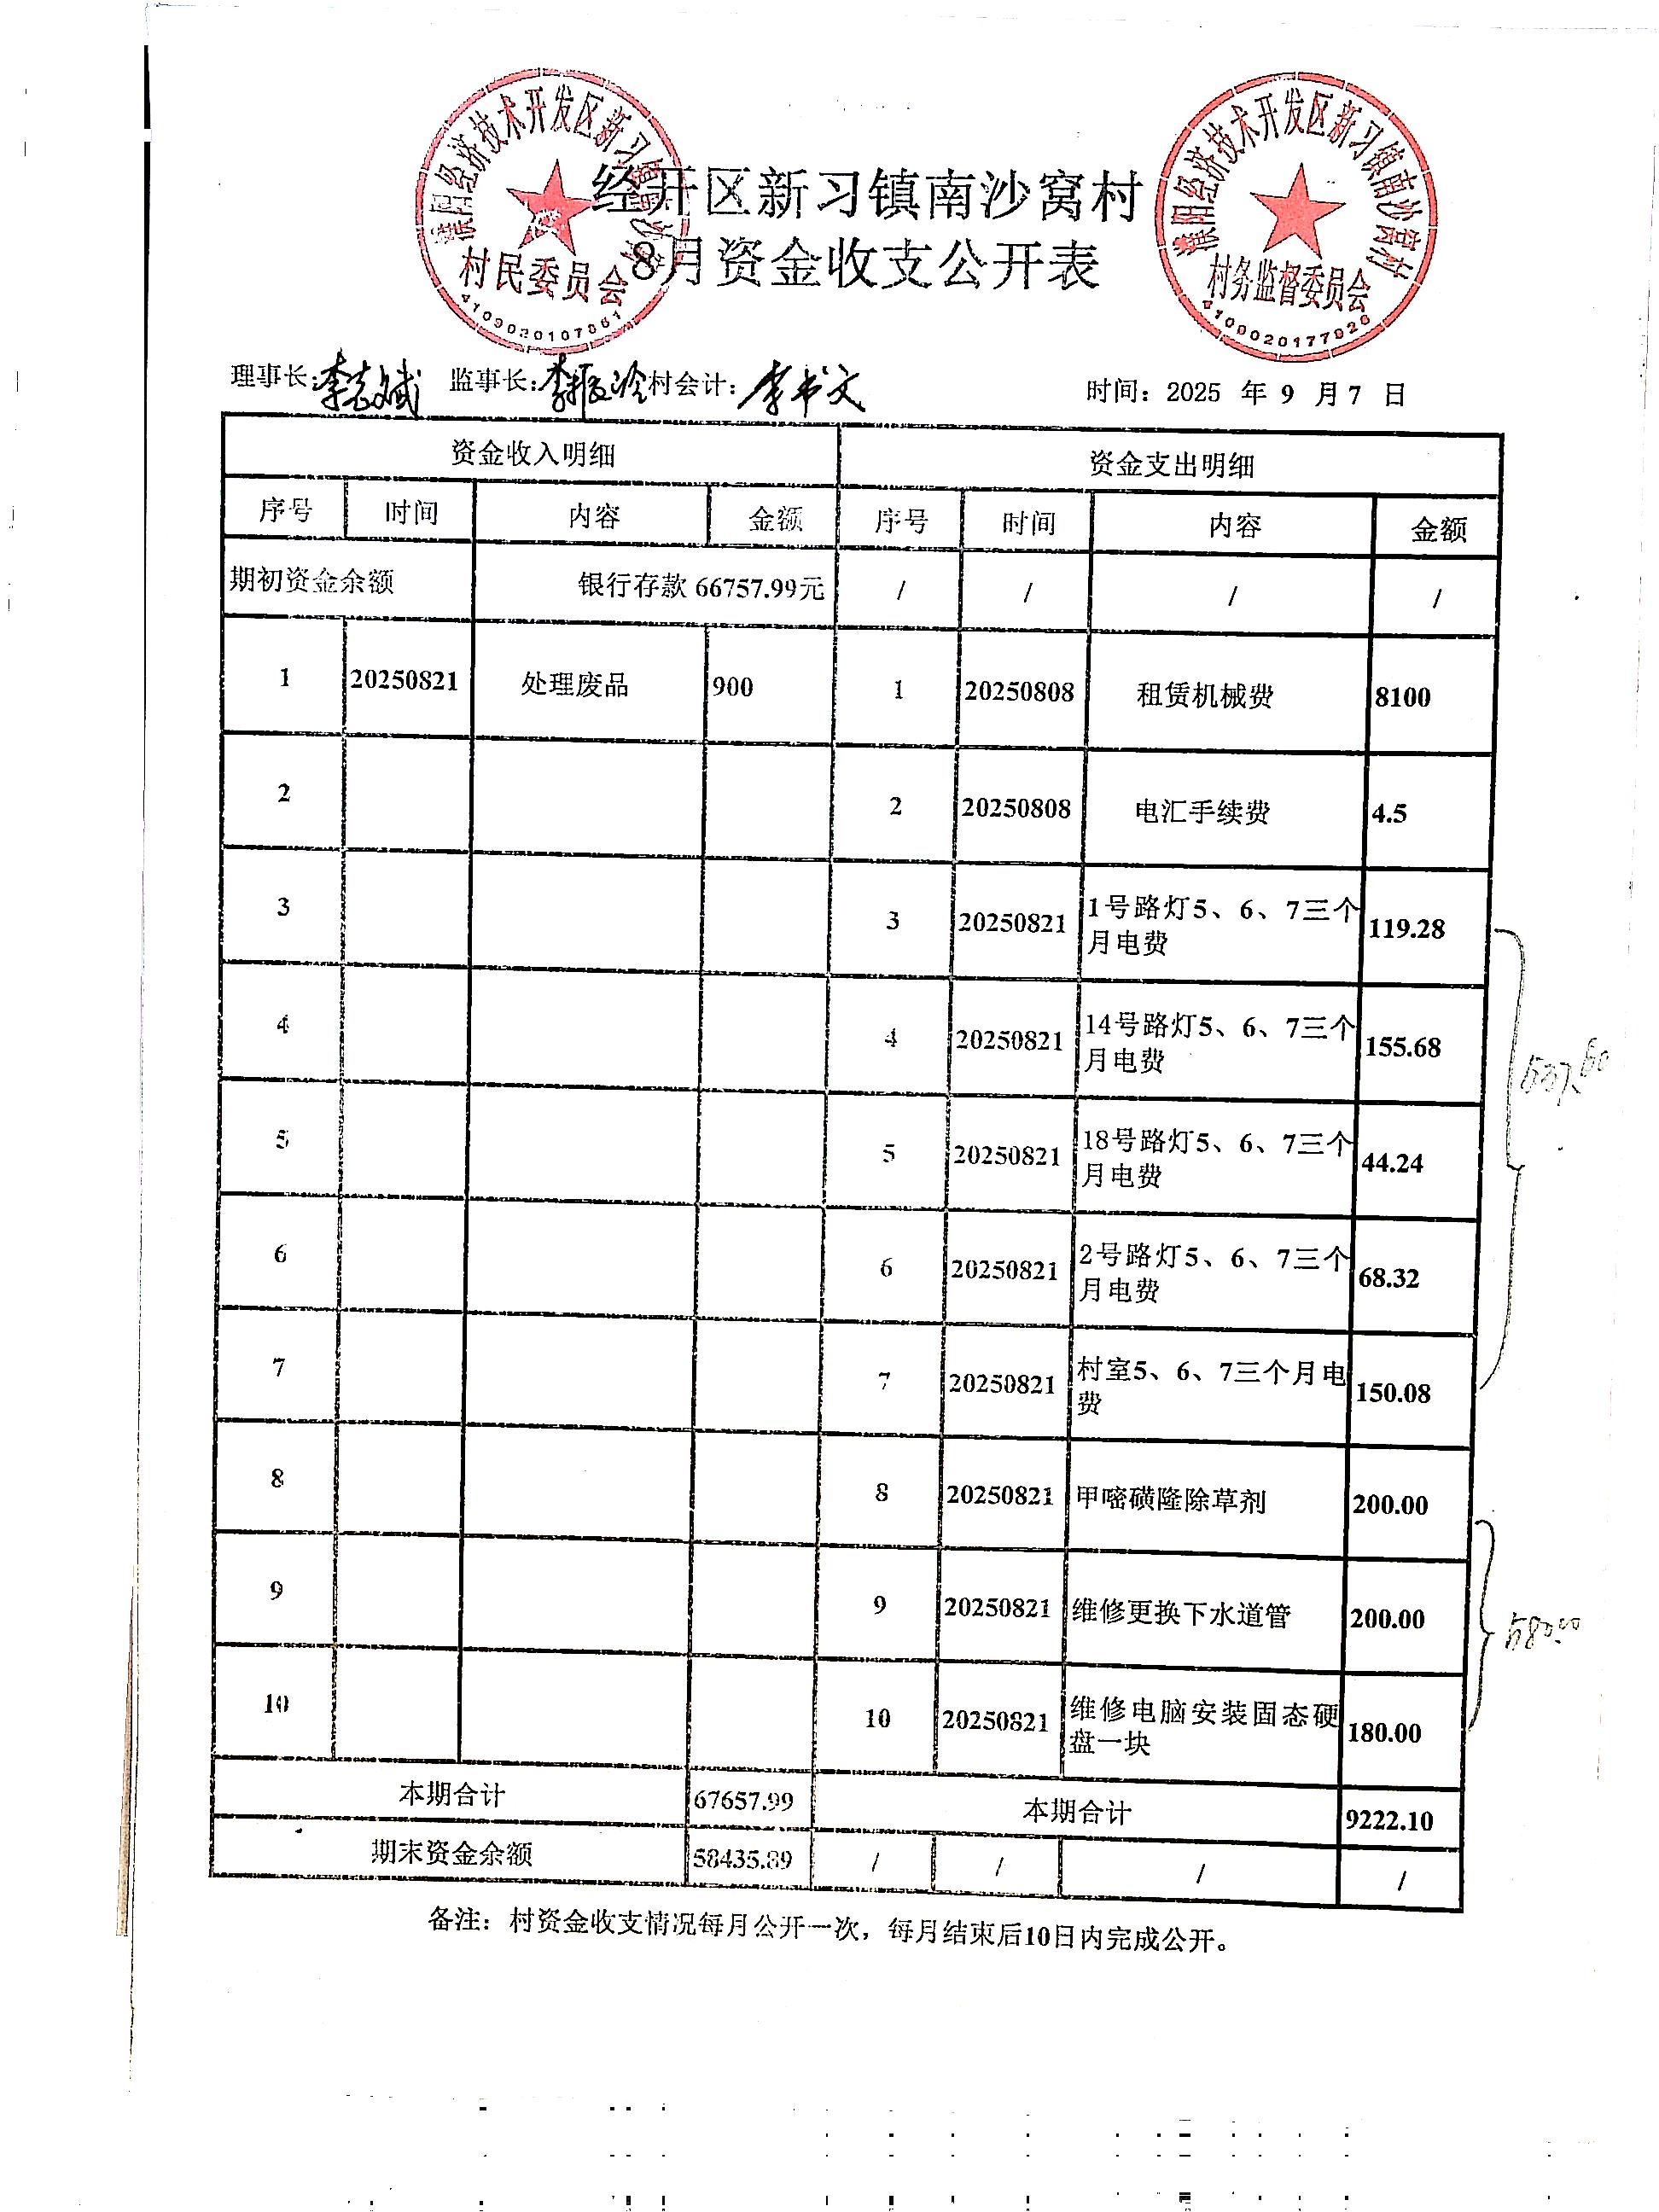 濮阳经济技术开发区新习镇南沙窝村
村民委员会
濮阳经济技术开发区新习镇南沙窝村
村务监督委员会
4109020177926
经开区新习镇南沙窝村
8月资金收支公开表
理事长: 监事长: 村会计: 李书文 时间: 2025 年 9 月 7 日
资金收入明细 资金支出明细
序号 时间 内容 金额 序号 时间 内容 金额
期初资金余额 银行存款 66757.99元 / / / /
1 20250821 处理废品 900 1 20250808 租赁机械费 8100
2 2 20250808 电汇手续费 4.5
3 3 20250821 1号路灯5、6、7三个
月电费 119.28
4 4 20250821 14号路灯5、6、7三个
月电费 155.68
5 5 20250821 18号路灯5、6、7三个
月电费 44.24
537.60
6 6 20250821 2号路灯5、6、7三个
月电费 68.32
7 7 20250821 村室5、6、7三个月电
费 150.08
8 8 20250821 甲嘧磺隆除草剂 200.00
9 9 20250821 维修更换下水道管 200.00
580.00
10 10 20250821 维修电脑安装固态硬
盘一块 180.00
本期合计 67657.99 本期合计 9222.10
期末资金余额 58435.89 / / / /
备注：村资金收支情况每月公开一次，每月结束后10日内完成公开。